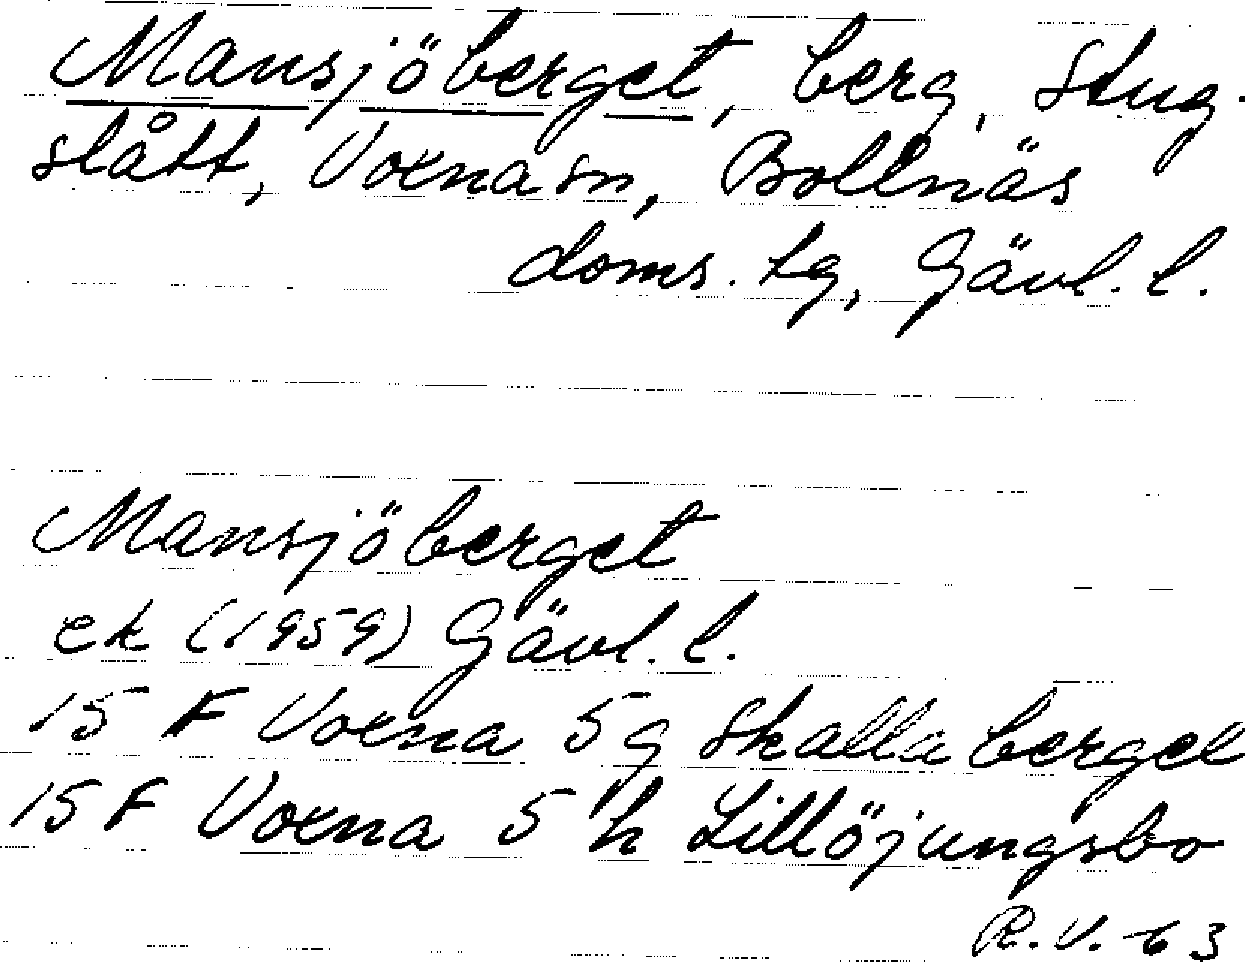 Mansjöberget, berg, Stug-
slått, Voxna sn, Bollnäs
doms. tg, Gävl. l.
Mansjöberget
ek (1959) Gävl. l.
15 F Voxna 5 g Skallaberget
15 F Voxna 5 h Lillöjungsbo
R.V. 63